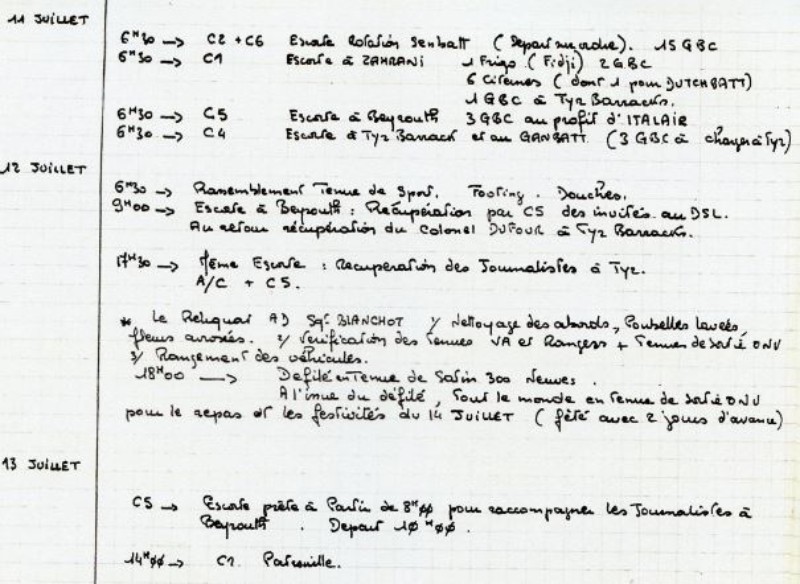 11 JUILLET
6H30 → C2 + C6 Escorte Rotation Senbatt ( Départ sur ordre). 15 GBC
6H30 → C1 Escorte à ZAHRANI 1 Frigo ( Fidji) 2 GBC
6 Citernes ( dont 1 pour DUTCHBATT)
1 GBC à Tyr Barracks.
6H30 → C5 Escorte à Beyrouth 3 GBC au profit d'ITALAIR
6H30 → C4 Escorte à Tyr Barrack et au GANBATT. ( 3 GBC à charger à Tyr)
12 JUILLET
6H30 → Rassemblement Tenue de Sport. Footing. Douches.
9H00 → Escorte à Beyrouth : Récupération par C5 des invités au DSL.
Au retour récupération du Colonel DUFOUR à Tyr Barracks.
17H30 → 1ème Escorte : Recuperation des Journalistes à Tyr.
A/C + C5.
* Le Reliquat AD Sgt BLANCHOT 1/ Nettoyage des abords, Poubelles lavées,
fleurs arrosées. 2/ Vérification des Tenues VA et Rangers + Tenues de Sortie ONU
3/ Rangement des véhicules.
18H00 → Défilé en Tenue de Satin 300 Neuves.
A l'issue du défilé, Tout le monde en tenue de sortie ONU
pour le repas et les festivités du 14 JUILLET ( fêté avec 2 jours d'avance)
13 JUILLET
C5 → Escorte prête à Partir de 8H00 pour raccompagner les Journalistes à
Beyrouth. Depart 10H00.
14H00 → C1. Patrouille.